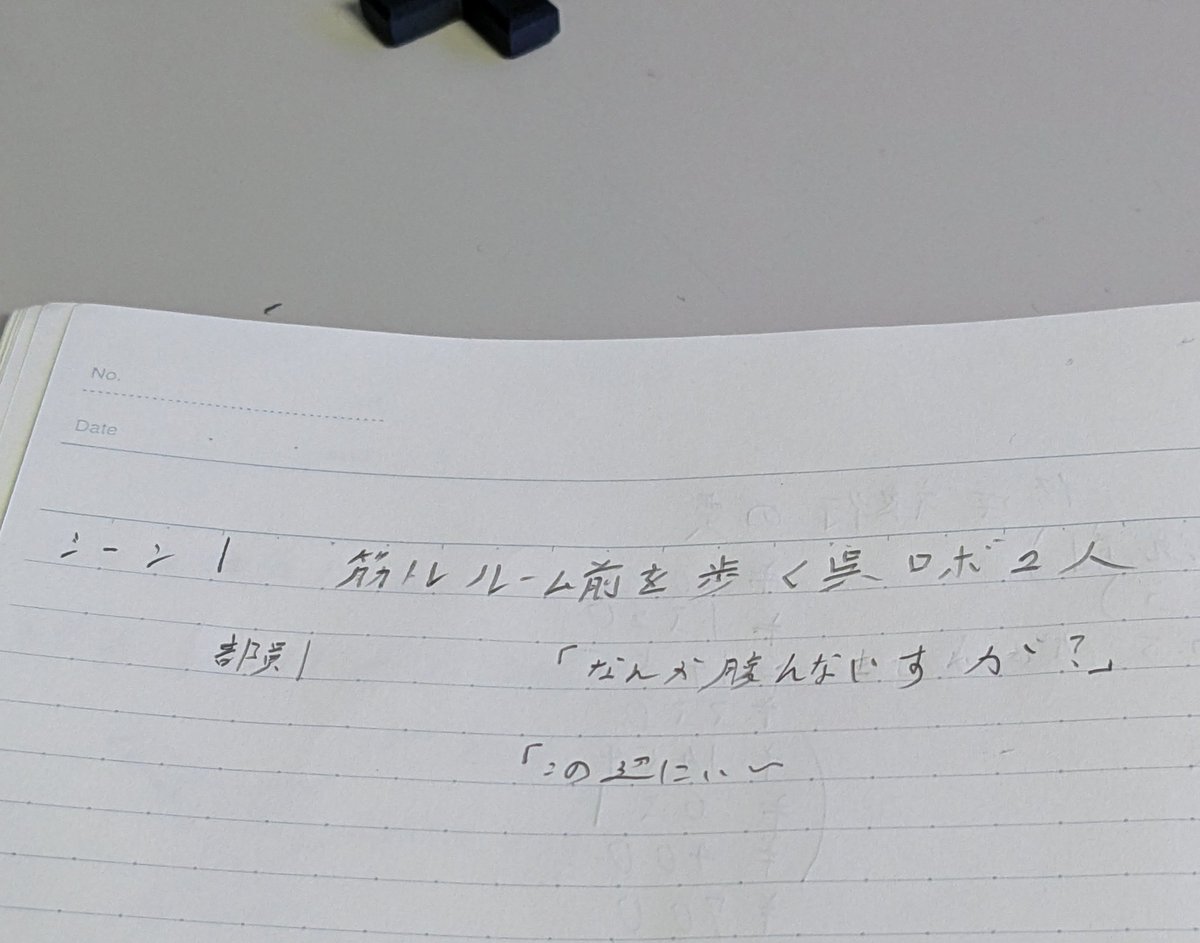 No.
Date
シーン1 筋トレルーム前を歩く呉ロボ2人
部員1 「なんか腹んないすか?」
「この辺にぃ〜